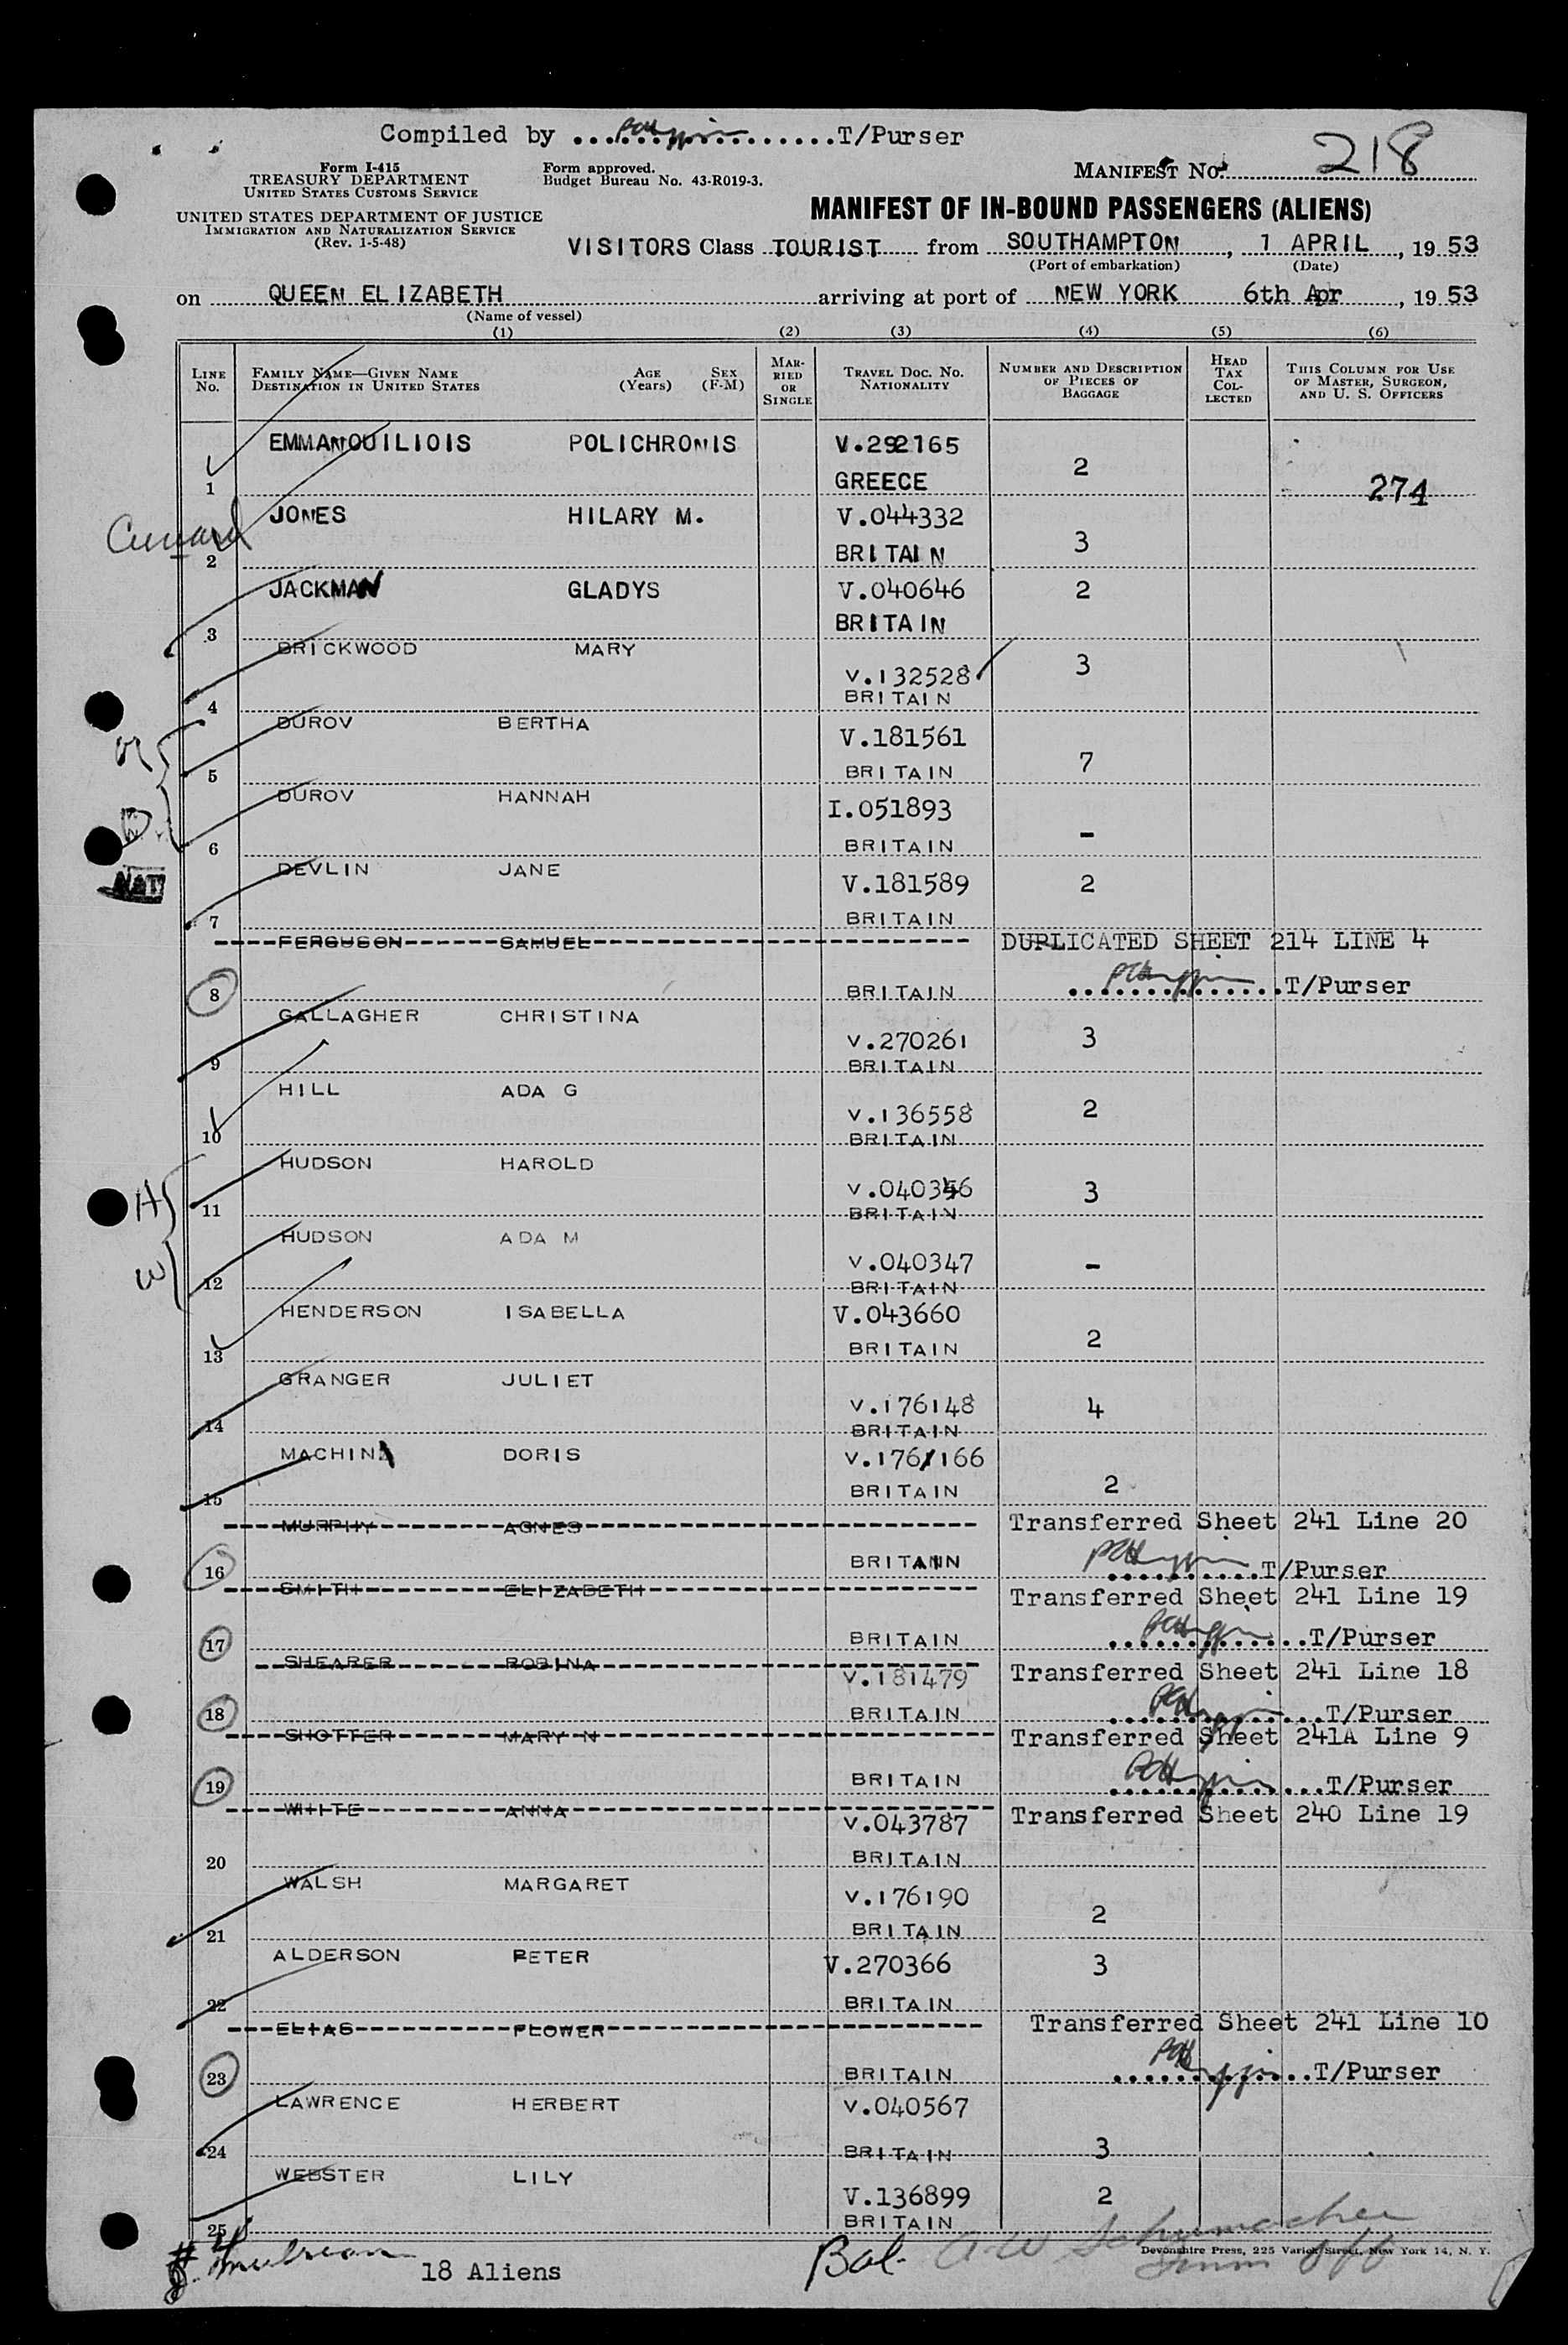 Compiled by ..................T/Purser
Form I-415
TREASURY DEPARTMENT
UNITED STATES CUSTOMS SERVICE
Form approved.
Budget Bureau No. 43-R019-3.
MANIFEST No. 218
UNITED STATES DEPARTMENT OF JUSTICE
IMMIGRATION AND NATURALIZATION SERVICE
(Rev. 1-5-48)
MANIFEST OF IN-BOUND PASSENGERS (ALIENS)
VISITORS Class TOURIST from SOUTHAMPTON, 1 APRIL, 19 53
(Port of embarkation) (Date)
on QUEEN ELIZABETH arriving at port of NEW YORK 6th Apr, 19 53
(Name of vessel)
(1) (2) (3) (4) (5) (6)
LINE No. FAMILY NAME—GIVEN NAME DESTINATION IN UNITED STATES AGE (Years) SEX (F-M) MARRIED OR SINGLE TRAVEL DOC. No. NATIONALITY NUMBER AND DESCRIPTION OF PIECES OF BAGGAGE HEAD TAX COLLECTED THIS COLUMN FOR USE OF MASTER, SURGEON, AND U. S. OFFICERS
EMMANOUILIOIS POLICHRONIS V.292165
1 GREECE 2 274
JONES HILARY M. V.044332
Cunard 2 BRITAIN 3
JACKMAN GLADYS V.040646 2
3 BRITAIN
BRICKWOOD MARY V.132528 3
4 BRITAIN
DUROV BERTHA V.181561
M 5 BRITAIN 7
DUROV HANNAH I.051893
D 6 BRITAIN -
DEVLIN JANE V.181589 2
NAT 7 BRITAIN
FERGUSON SAMUEL DUPLICATED SHEET 214 LINE 4
8 BRITAIN ..............T/Purser
GALLAGHER CHRISTINA V.270261 3
9 BRITAIN
HILL ADA G V.136558 2
10 BRITAIN
HUDSON HAROLD V.040346 3
H 11 BRITAIN
HUDSON ADA M V.040347 -
W 12 BRITAIN
HENDERSON ISABELLA V.043660
13 BRITAIN 2
GRANGER JULIET V.176148 4
14 BRITAIN
MACHIN DORIS V.176/166
15 BRITAIN 2
MURPHY AGNES Transferred Sheet 241 Line 20
16 BRITAIN ..........T/Purser
SMITH ELIZABETH Transferred Sheet 241 Line 19
17 BRITAIN .............T/Purser
SHEARER ROBINA V.181479 Transferred Sheet 241 Line 18
18 BRITAIN ..............T/Purser
SHOTTER MARY N Transferred Sheet 241A Line 9
19 BRITAIN ..............T/Purser
WHITE ANNA V.043787 Transferred Sheet 240 Line 19
20 BRITAIN
WALSH MARGARET V.176190
21 BRITAIN 2
ALDERSON PETER V.270366 3
22 BRITAIN
ELIAS FLOWER Transferred Sheet 241 Line 10
23 BRITAIN .............T/Purser
LAWRENCE HERBERT V.040567
24 BRITAIN 3
WEBSTER LILY V.136899 2
25 BRITAIN
18 Aliens Bal. A W Schumacher
Imm Off
Devonshire Press, 225 Varick Street, New York 14, N. Y.